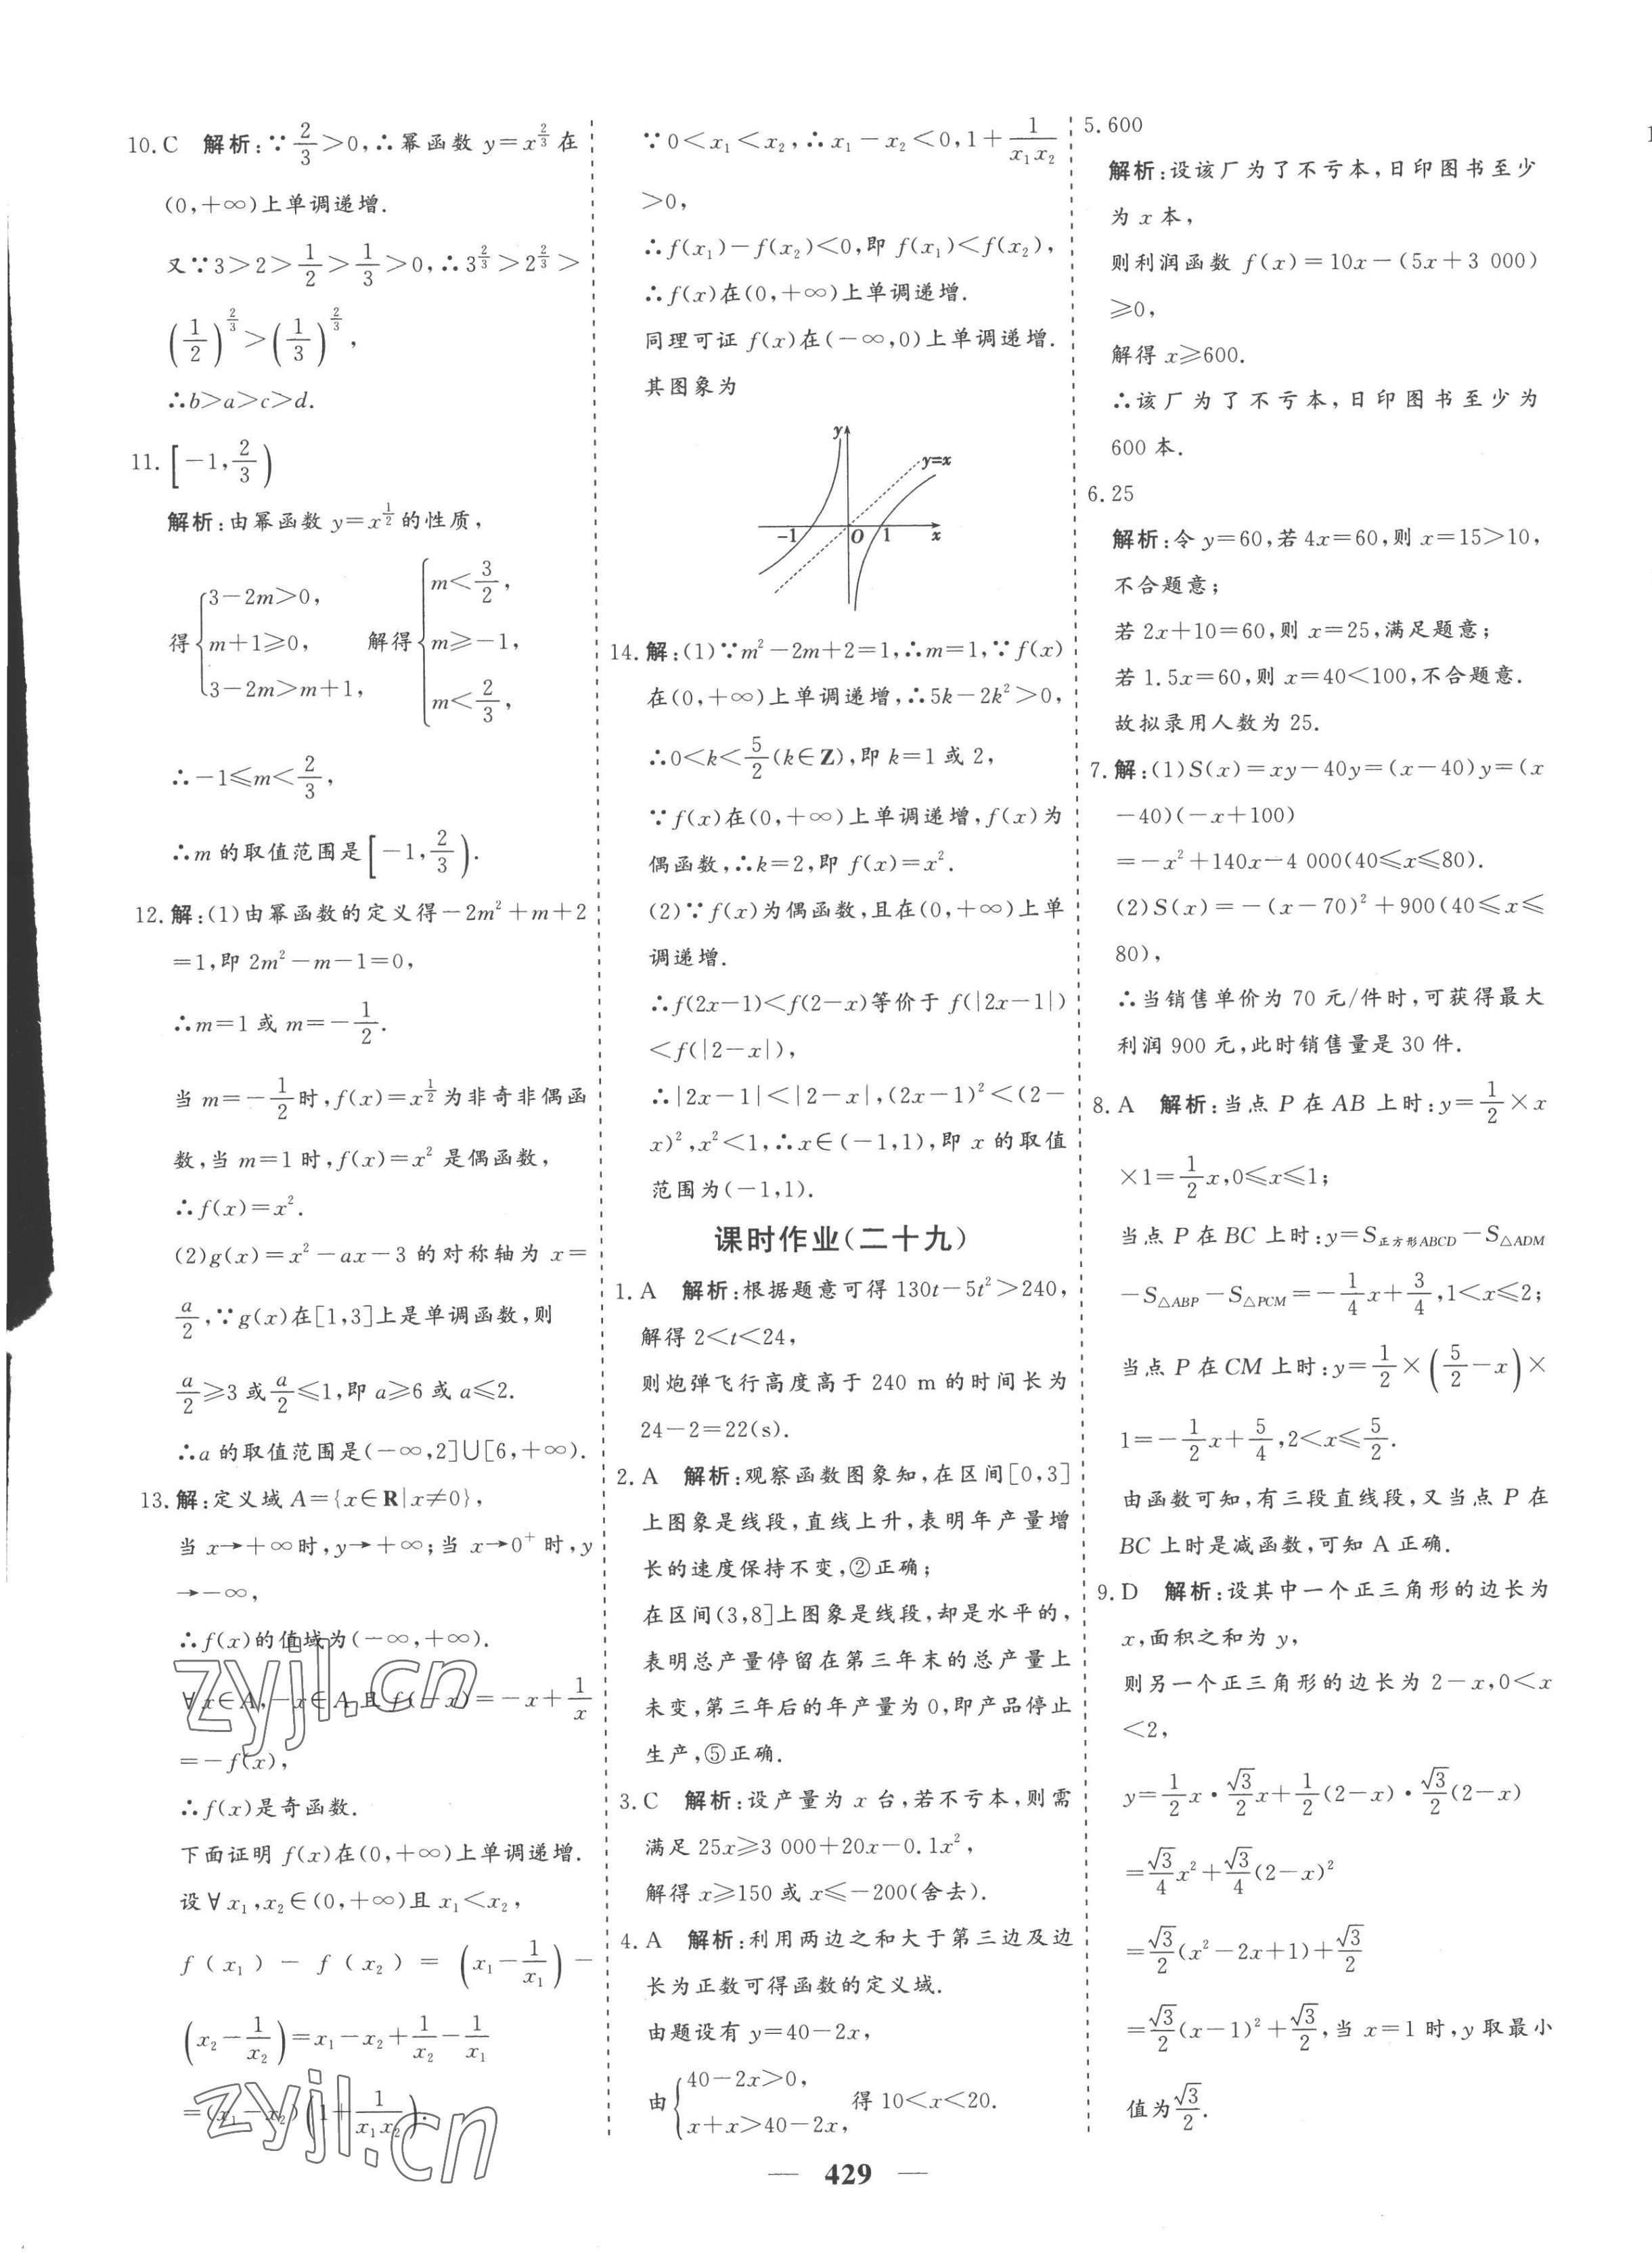 10.C 解析:∵2/3>0,∴幂函数 y=x^(2/3) 在
(0,+∞)上单调递增.
又∵3>2>1/2>1/3>0,∴3^(2/3)>2^(2/3)>
(1/2)^(2/3)>(1/3)^(2/3),
∴b>a>c>d.
11.[-1,2/3)
解析:由幂函数 y=x^(1/2)的性质,
得{3-2m>0, m+1≥0, 3-2m>m+1, 解得{m<3/2, m≥-1, m<2/3,
∴-1≤m<2/3,
∴m 的取值范围是[-1,2/3).
12.解:(1)由幂函数的定义得-2m²+m+2
=1,即 2m²-m-1=0,
∴m=1 或 m=-1/2.
当 m=-1/2时,f(x)=x^(1/2)为非奇非偶函
数,当 m=1 时,f(x)=x² 是偶函数,
∴f(x)=x².
(2)g(x)=x²-ax-3 的对称轴为 x=
a/2,∵g(x)在[1,3]上是单调函数,则
a/2≥3 或a/2≤1,即 a≥6 或 a≤2.
∴a 的取值范围是(-∞,2]∪[6,+∞).
13.解:定义域 A={x∈R|x≠0},
当 x→+∞时,y→+∞;当 x→0⁺ 时,y
→-∞,
∴f(x)的值域为(-∞,+∞).
∀x∈A,-x∈A,且 f(-x)=-x+1/x
=-f(x),
∴f(x)是奇函数.
下面证明 f(x)在(0,+∞)上单调递增.
设∀x₁,x₂∈(0,+∞)且 x₁<x₂,
f(x₁)-f(x₂)=(x₁-1/x₁)-
(x₂-1/x₂)=x₁-x₂+1/x₂-1/x₁
=(x₁-x₂)(1+1/(x₁x₂)).
∵0<x₁<x₂,∴x₁-x₂<0,1+1/(x₁x₂)
>0,
∴f(x₁)-f(x₂)<0,即 f(x₁)<f(x₂),
∴f(x)在(0,+∞)上单调递增.
同理可证 f(x)在(-∞,0)上单调递增.
其图象为
y
y=x
-1 O 1 x
14.解:(1)∵m²-2m+2=1,∴m=1,∵f(x)
在(0,+∞)上单调递增,∴5k-2k²>0,
∴0<k<5/2(k∈Z),即 k=1 或 2,
∵f(x)在(0,+∞)上单调递增,f(x)为
偶函数,∴k=2,即 f(x)=x².
(2)∵f(x)为偶函数,且在(0,+∞)上单
调递增.
∴f(2x-1)<f(2-x)等价于 f(|2x-1|)
<f(|2-x|),
∴|2x-1|<|2-x|,(2x-1)²<(2-
x)²,x²<1,∴x∈(-1,1),即 x 的取值
范围为(-1,1).
课时作业(二十九)
1.A 解析:根据题意可得 130t-5t²>240,
解得 2<t<24,
则炮弹飞行高度高于 240 m 的时间长为
24-2=22(s).
2.A 解析:观察函数图象知,在区间[0,3]
上图象是线段,直线上升,表明年产量增
长的速度保持不变,②正确;
在区间(3,8]上图象是线段,却是水平的,
表明总产量停留在第三年末的总产量上
未变,第三年后的年产量为 0,即产品停止
生产,⑤正确.
3.C 解析:设产量为 x 台,若不亏本,则需
满足 25x≥3 000+20x-0.1x²,
解得 x≥150 或 x≤-200(舍去).
4.A 解析:利用两边之和大于第三边及边
长为正数可得函数的定义域.
由题设有 y=40-2x,
由{40-2x>0, x+x>40-2x, 得 10<x<20.
5.600
解析:设该厂为了不亏本,日印图书至少
为 x 本,
则利润函数 f(x)=10x-(5x+3 000)
≥0,
解得 x≥600.
∴该厂为了不亏本,日印图书至少为
600 本.
6.25
解析:令 y=60,若 4x=60,则 x=15>10,
不合题意;
若 2x+10=60,则 x=25,满足题意;
若 1.5x=60,则 x=40<100,不合题意.
故拟录用人数为 25.
7.解:(1)S(x)=xy-40y=(x-40)y=(x
-40)(-x+100)
=-x²+140x-4 000(40≤x≤80).
(2)S(x)=-(x-70)²+900(40≤x≤
80),
∴当销售单价为 70 元/件时,可获得最大
利润 900 元,此时销售量是 30 件.
8.A 解析:当点 P 在 AB 上时:y=1/2×x
×1=1/2x,0≤x≤1;
当点 P 在 BC 上时:y=S正方形ABCD-S△ADM
-S△ABP-S△PCM=-1/4x+3/4,1<x≤2;
当点 P 在 CM 上时:y=1/2×(5/2-x)×
1=-1/2x+5/4,2<x≤5/2.
由函数可知,有三段直线段,又当点 P 在
BC 上时是减函数,可知 A 正确.
9.D 解析:设其中一个正三角形的边长为
x,面积之和为 y,
则另一个正三角形的边长为 2-x,0<x
<2,
y=1/2x·√3/2x+1/2(2-x)·√3/2(2-x)
=√3/4x²+√3/4(2-x)²
=√3/2(x²-2x+1)+√3/2
=√3/2(x-1)²+√3/2,当 x=1 时,y 取最小
值为√3/2.
— 429 —
zyjl.cn
zyjl.cn